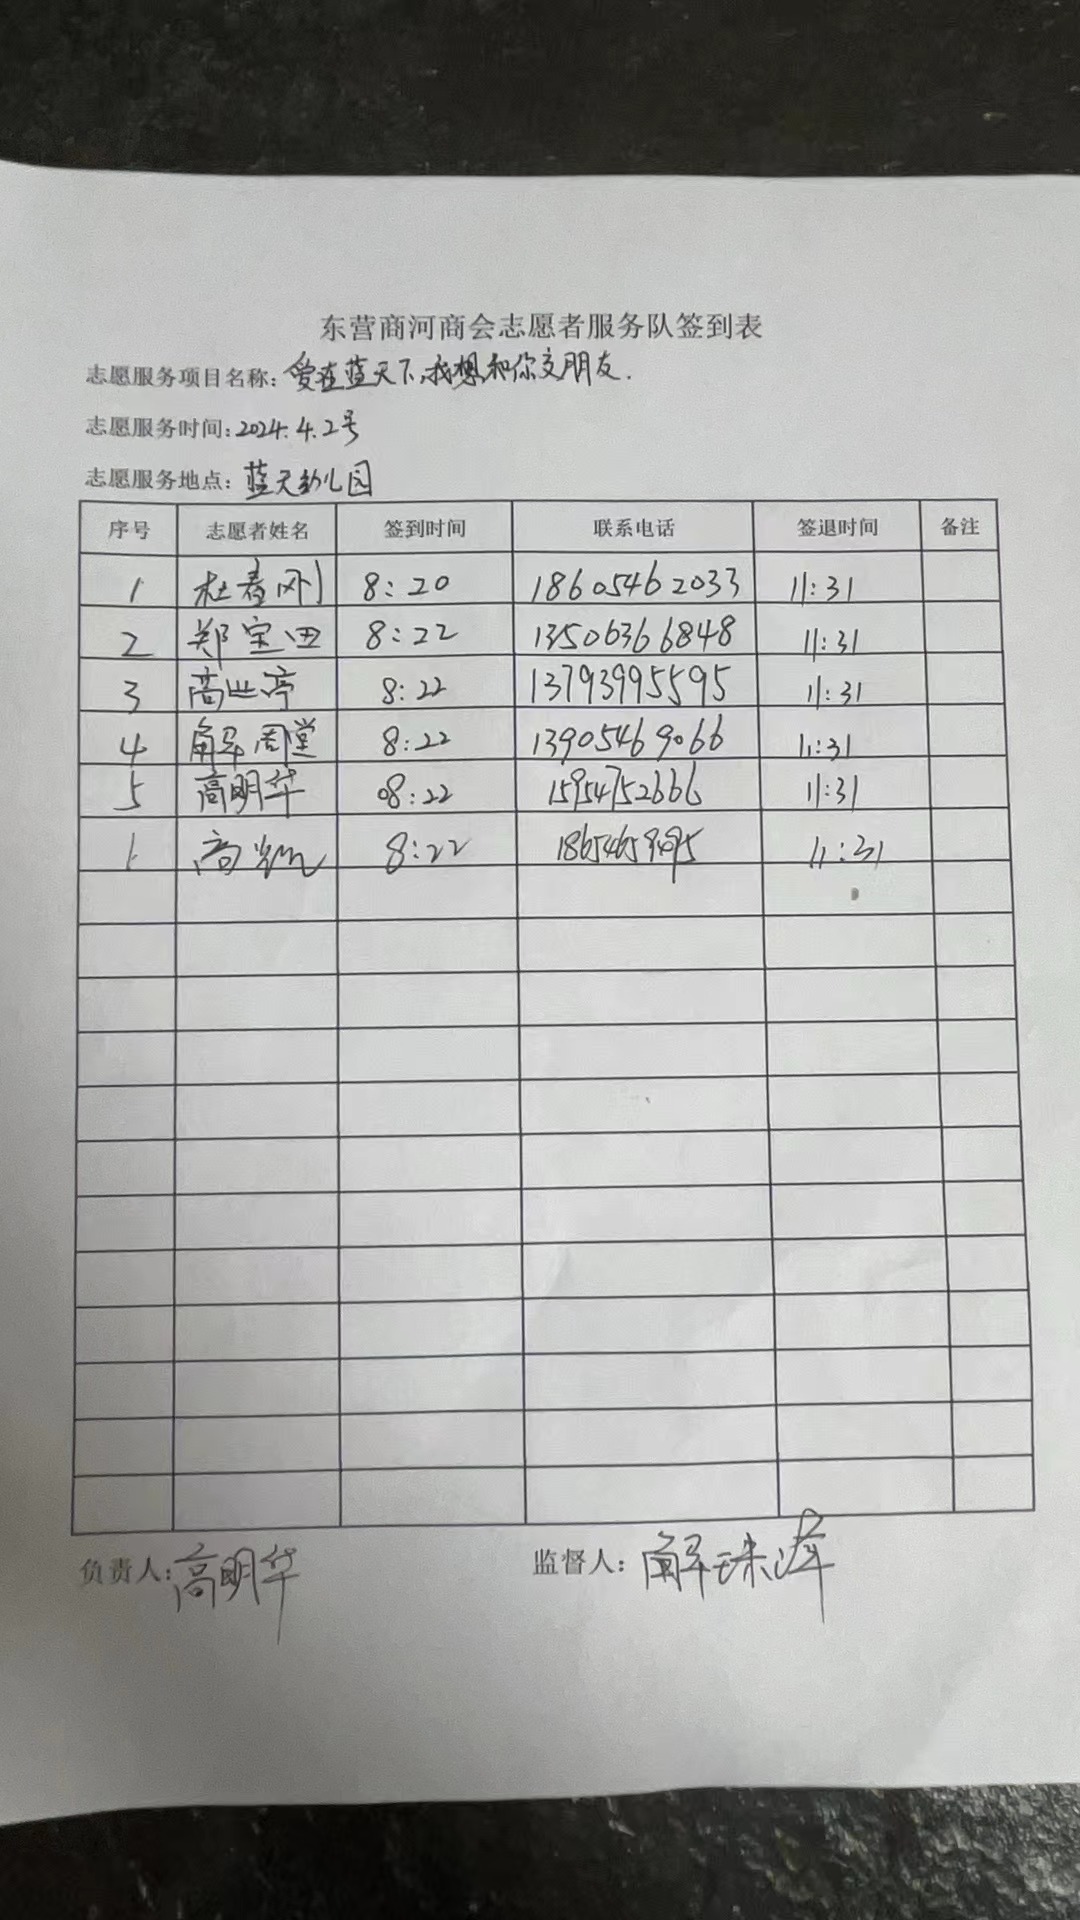 东营商河商会志愿者服务队签到表
志愿服务项目名称:爱在蓝天下,我想和你交朋友.
志愿服务时间:2024.4.2号
志愿服务地点:蓝天幼儿园
序号 志愿者姓名 签到时间 联系电话 签退时间 备注
1 杜春刚 8:20 18605462033 11:31
2 郑宝田 8:22 13506366848 11:31
3 高世亭 8:22 13793995595 11:31
4 解周堂 8:22 13905469066 11:31
5 高明华 08:22 15954752666 11:31
高 8:22 11:31
负责人:高明华 监督人:解珠泽